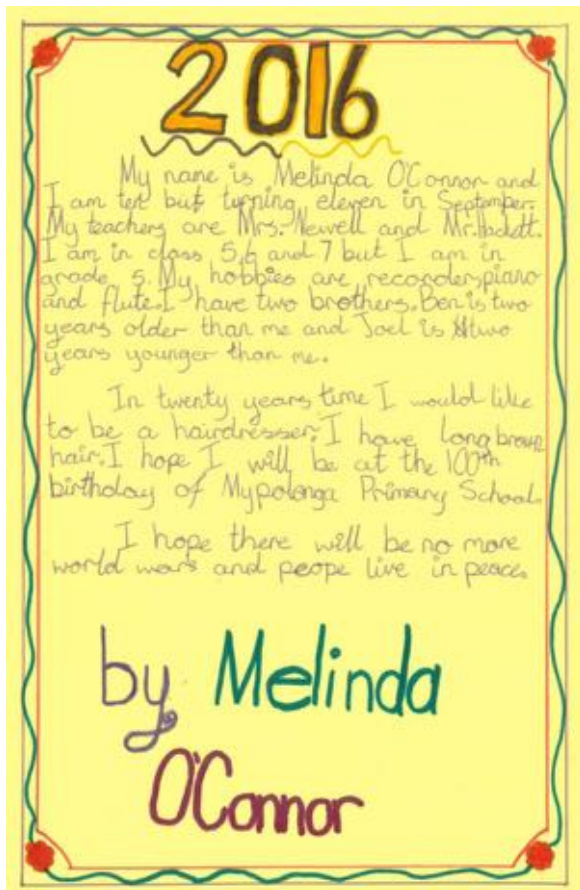 2016
My name is Melinda O'Connor and
I am ten but turning eleven in September.
My teachers are Mrs. Newell and Mr. Hackett.
I am in class 5,6 and 7 but I am in
grade 5. My hobbies are recorder, piano
and flute. I have two brothers. Ben is two
years older than me and Joel is two
years younger than me.
In twenty years time I would like
to be a hairdresser. I have long brown
hair. I hope I will be at the 100th
birthday of Mypolonga Primary School.
I hope there will be no more
world wars and peope live in peace.
by Melinda
O'Connor